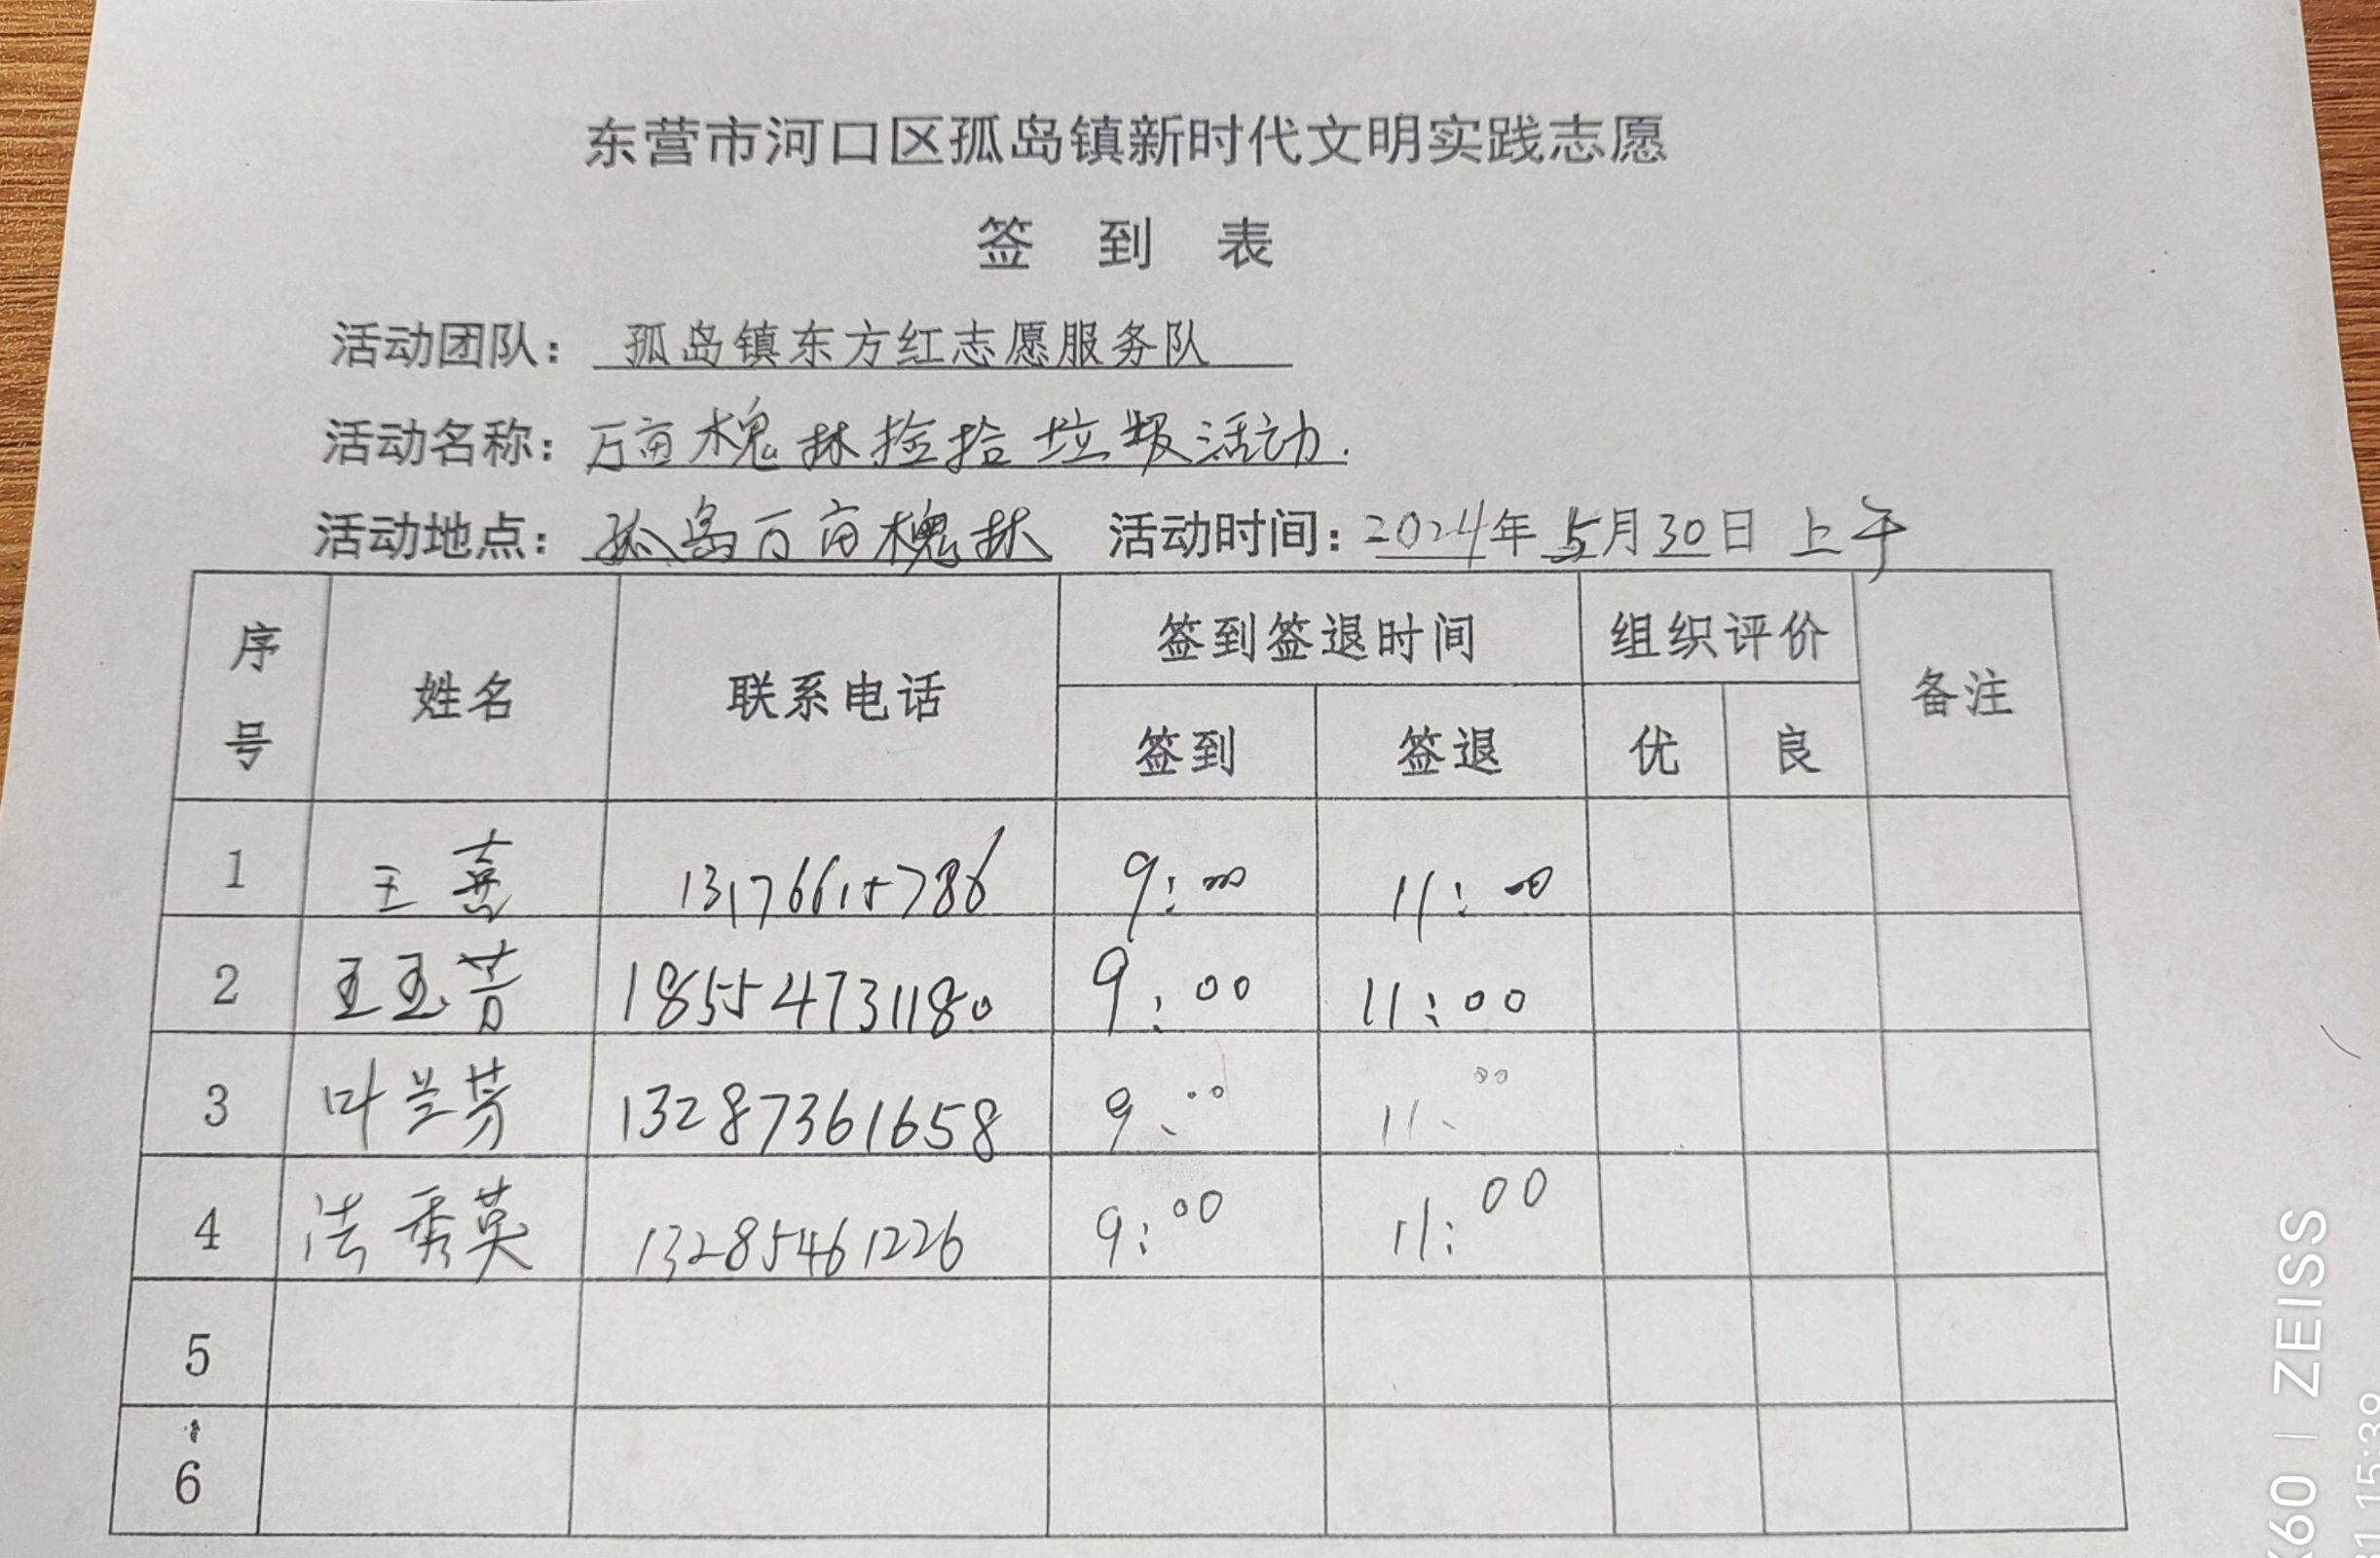 东营市河口区孤岛镇新时代文明实践志愿
签 到 表
活动团队：孤岛镇东方红志愿服务队
活动名称：万亩槐林捡拾垃圾活动.
活动地点：孤岛万亩槐林 活动时间：2024年5月30日上午
序号 姓名 联系电话 签到签退时间 组织评价 备注
签到 签退 优 良
1 王 13176615786 9:00 11:00
2 王玉芳 18554731180 9:00 11:00
3 叶兰芳 13287361658 9:00 11:00
4 法秀英 13285461226 9:00 11:00
5
6
X60 | ZEISS
15:38